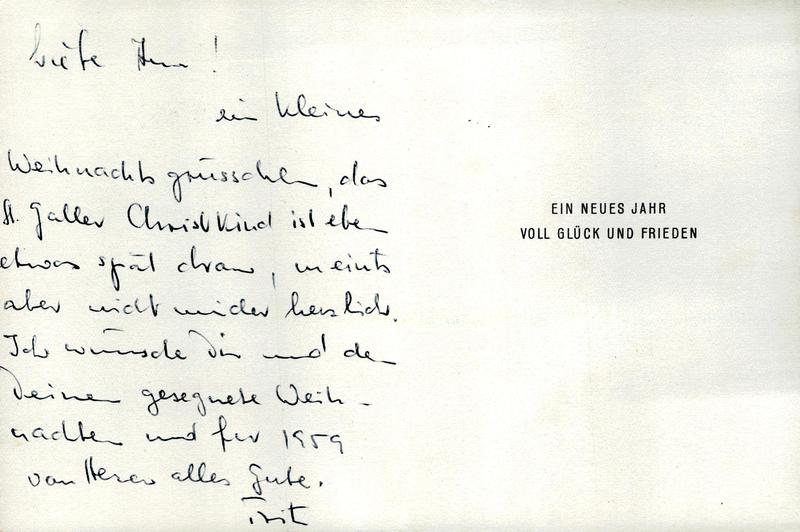 Liebe
!
ein kleines
Weihnachtsgrüsschen, das
St. Galler Christkind ist eben
etwas spät dran, meints
aber nicht minder herzlich.
Ich wünsche Dir und den
Deinen gesegnete Weih-
nachten und für 1959
von Herzen alles Gute.
EIN NEUES JAHR
VOLL GLÜCK UND FRIEDEN